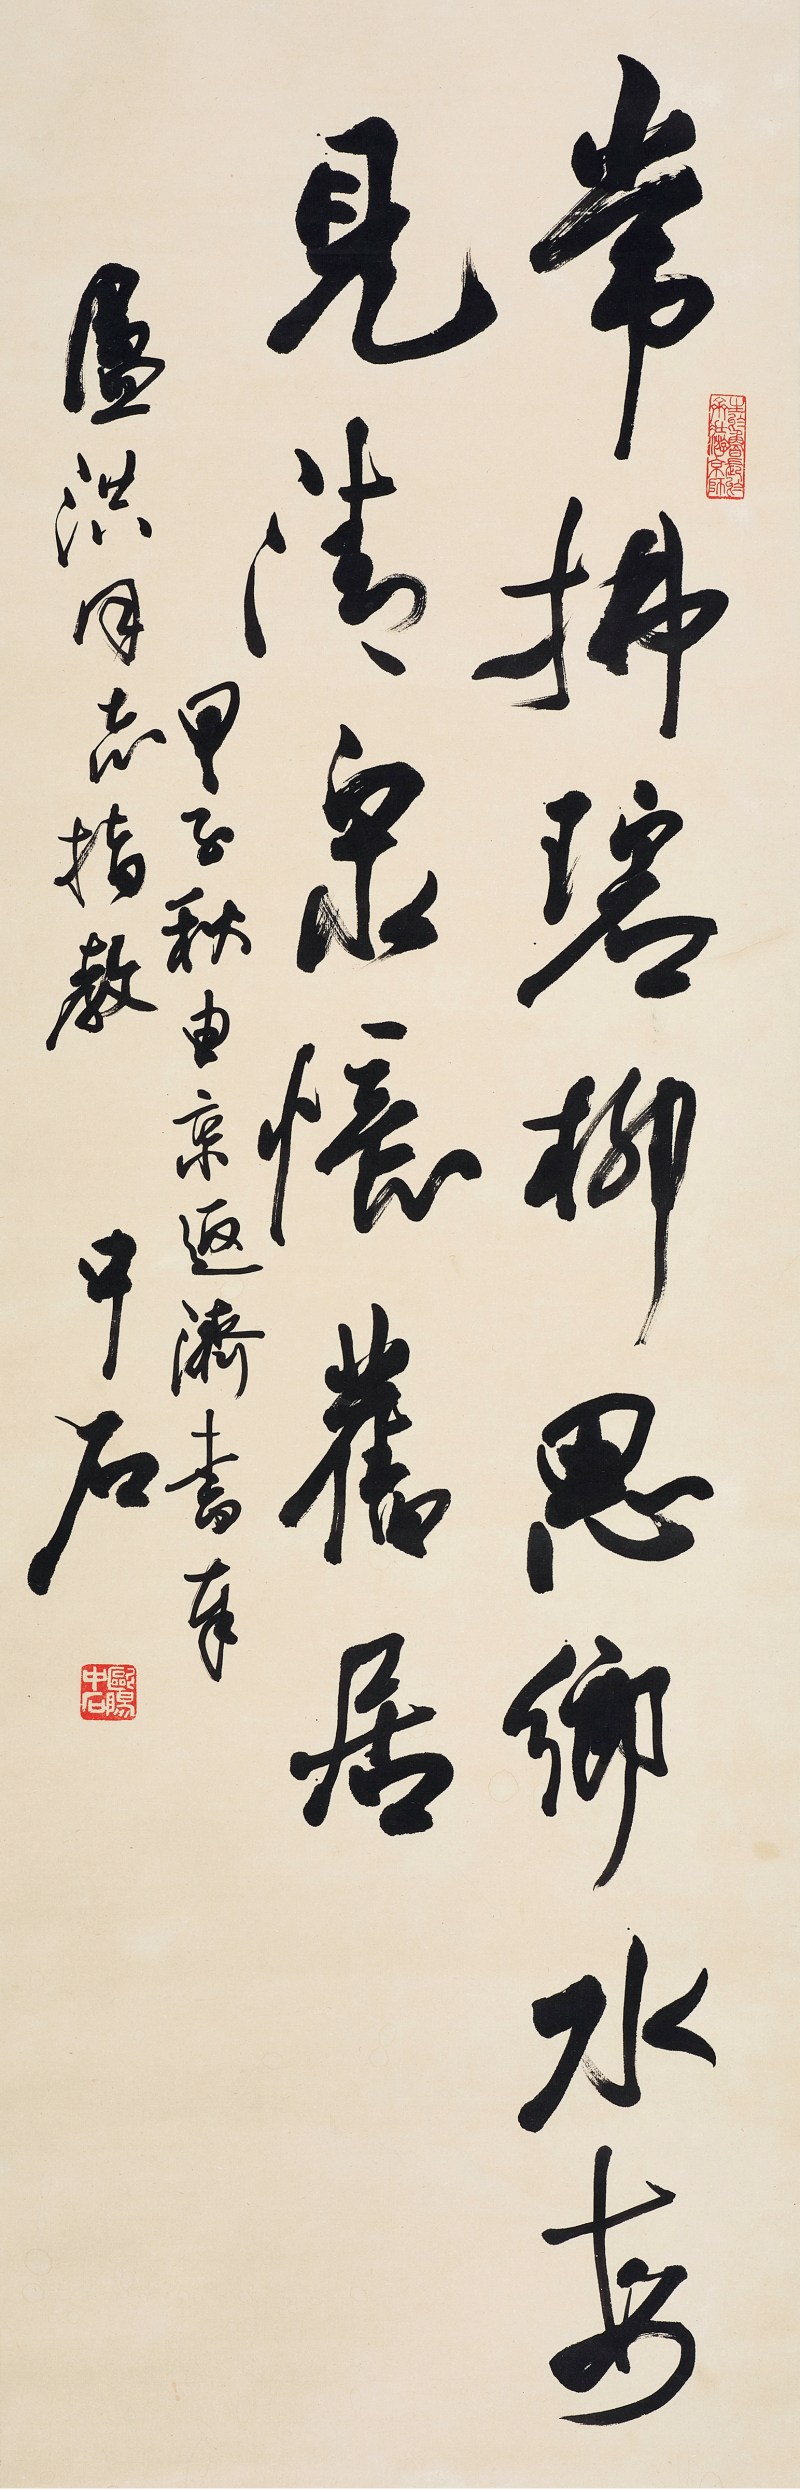 常拂碧柳思鄉水每
見清泉懷舊居
甲子秋由京返濟書奉
盧洪同志指教 中石
歐陽中石